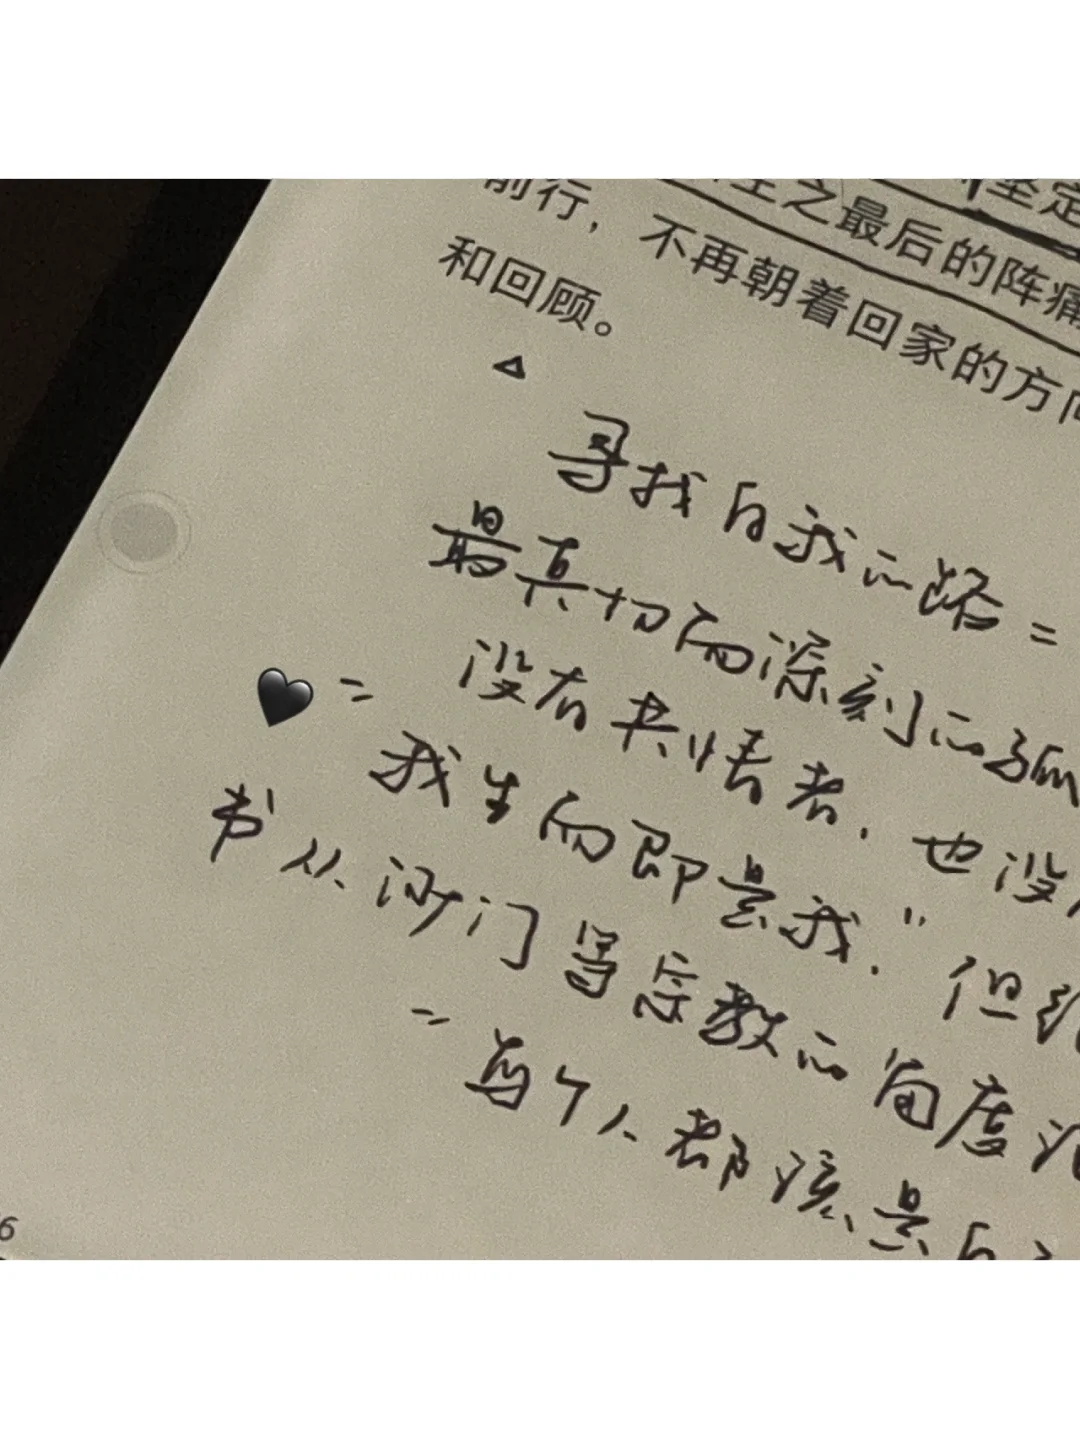 坚定
生之最后的阵痛
前行，不再朝着回家的方向
和回顾。
寻找自我的路=
最真切而深刻的孤
没有共情者，也没
="我生而即是我。"但
书从沙门等宗教的角度
="每个人都该是自
6